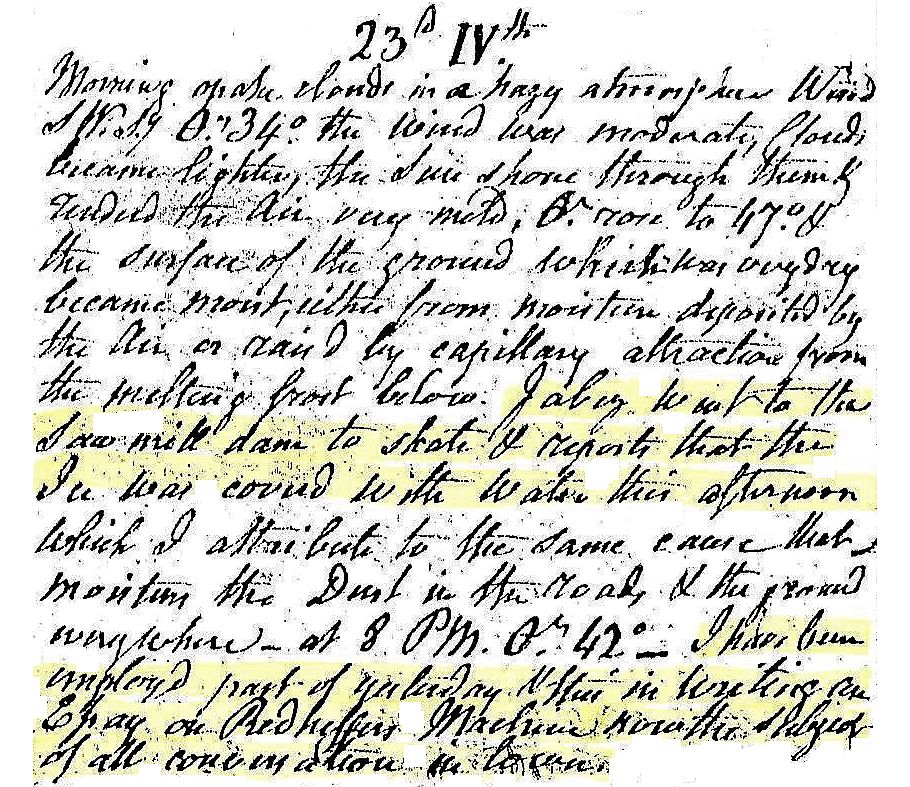 23d IVth
Morning opake clouds in a hazy atmosphere Wind
S W. Ther 34° the wind was moderate, Clouds
became lighter, the Sun shone through them &
rended the Air very mild, Ther rose to 47° &
the surface of the ground which was very dry
became moist, either from moisture deposited by
the Air or rais'd by capillary attraction from
the melting frost below. Jabez went to the
Saw mill dam to skate & reports that the
Ice was coverd with water this afternoon
which I attribute to the same cause that
moistens the Dust in the roads & the ground
everywhere - at 8 PM. Ther 42° — I have been
employd part of yesterday & this in writing an
Essay on Redheffers Machine now the subject
of all conversation in town.